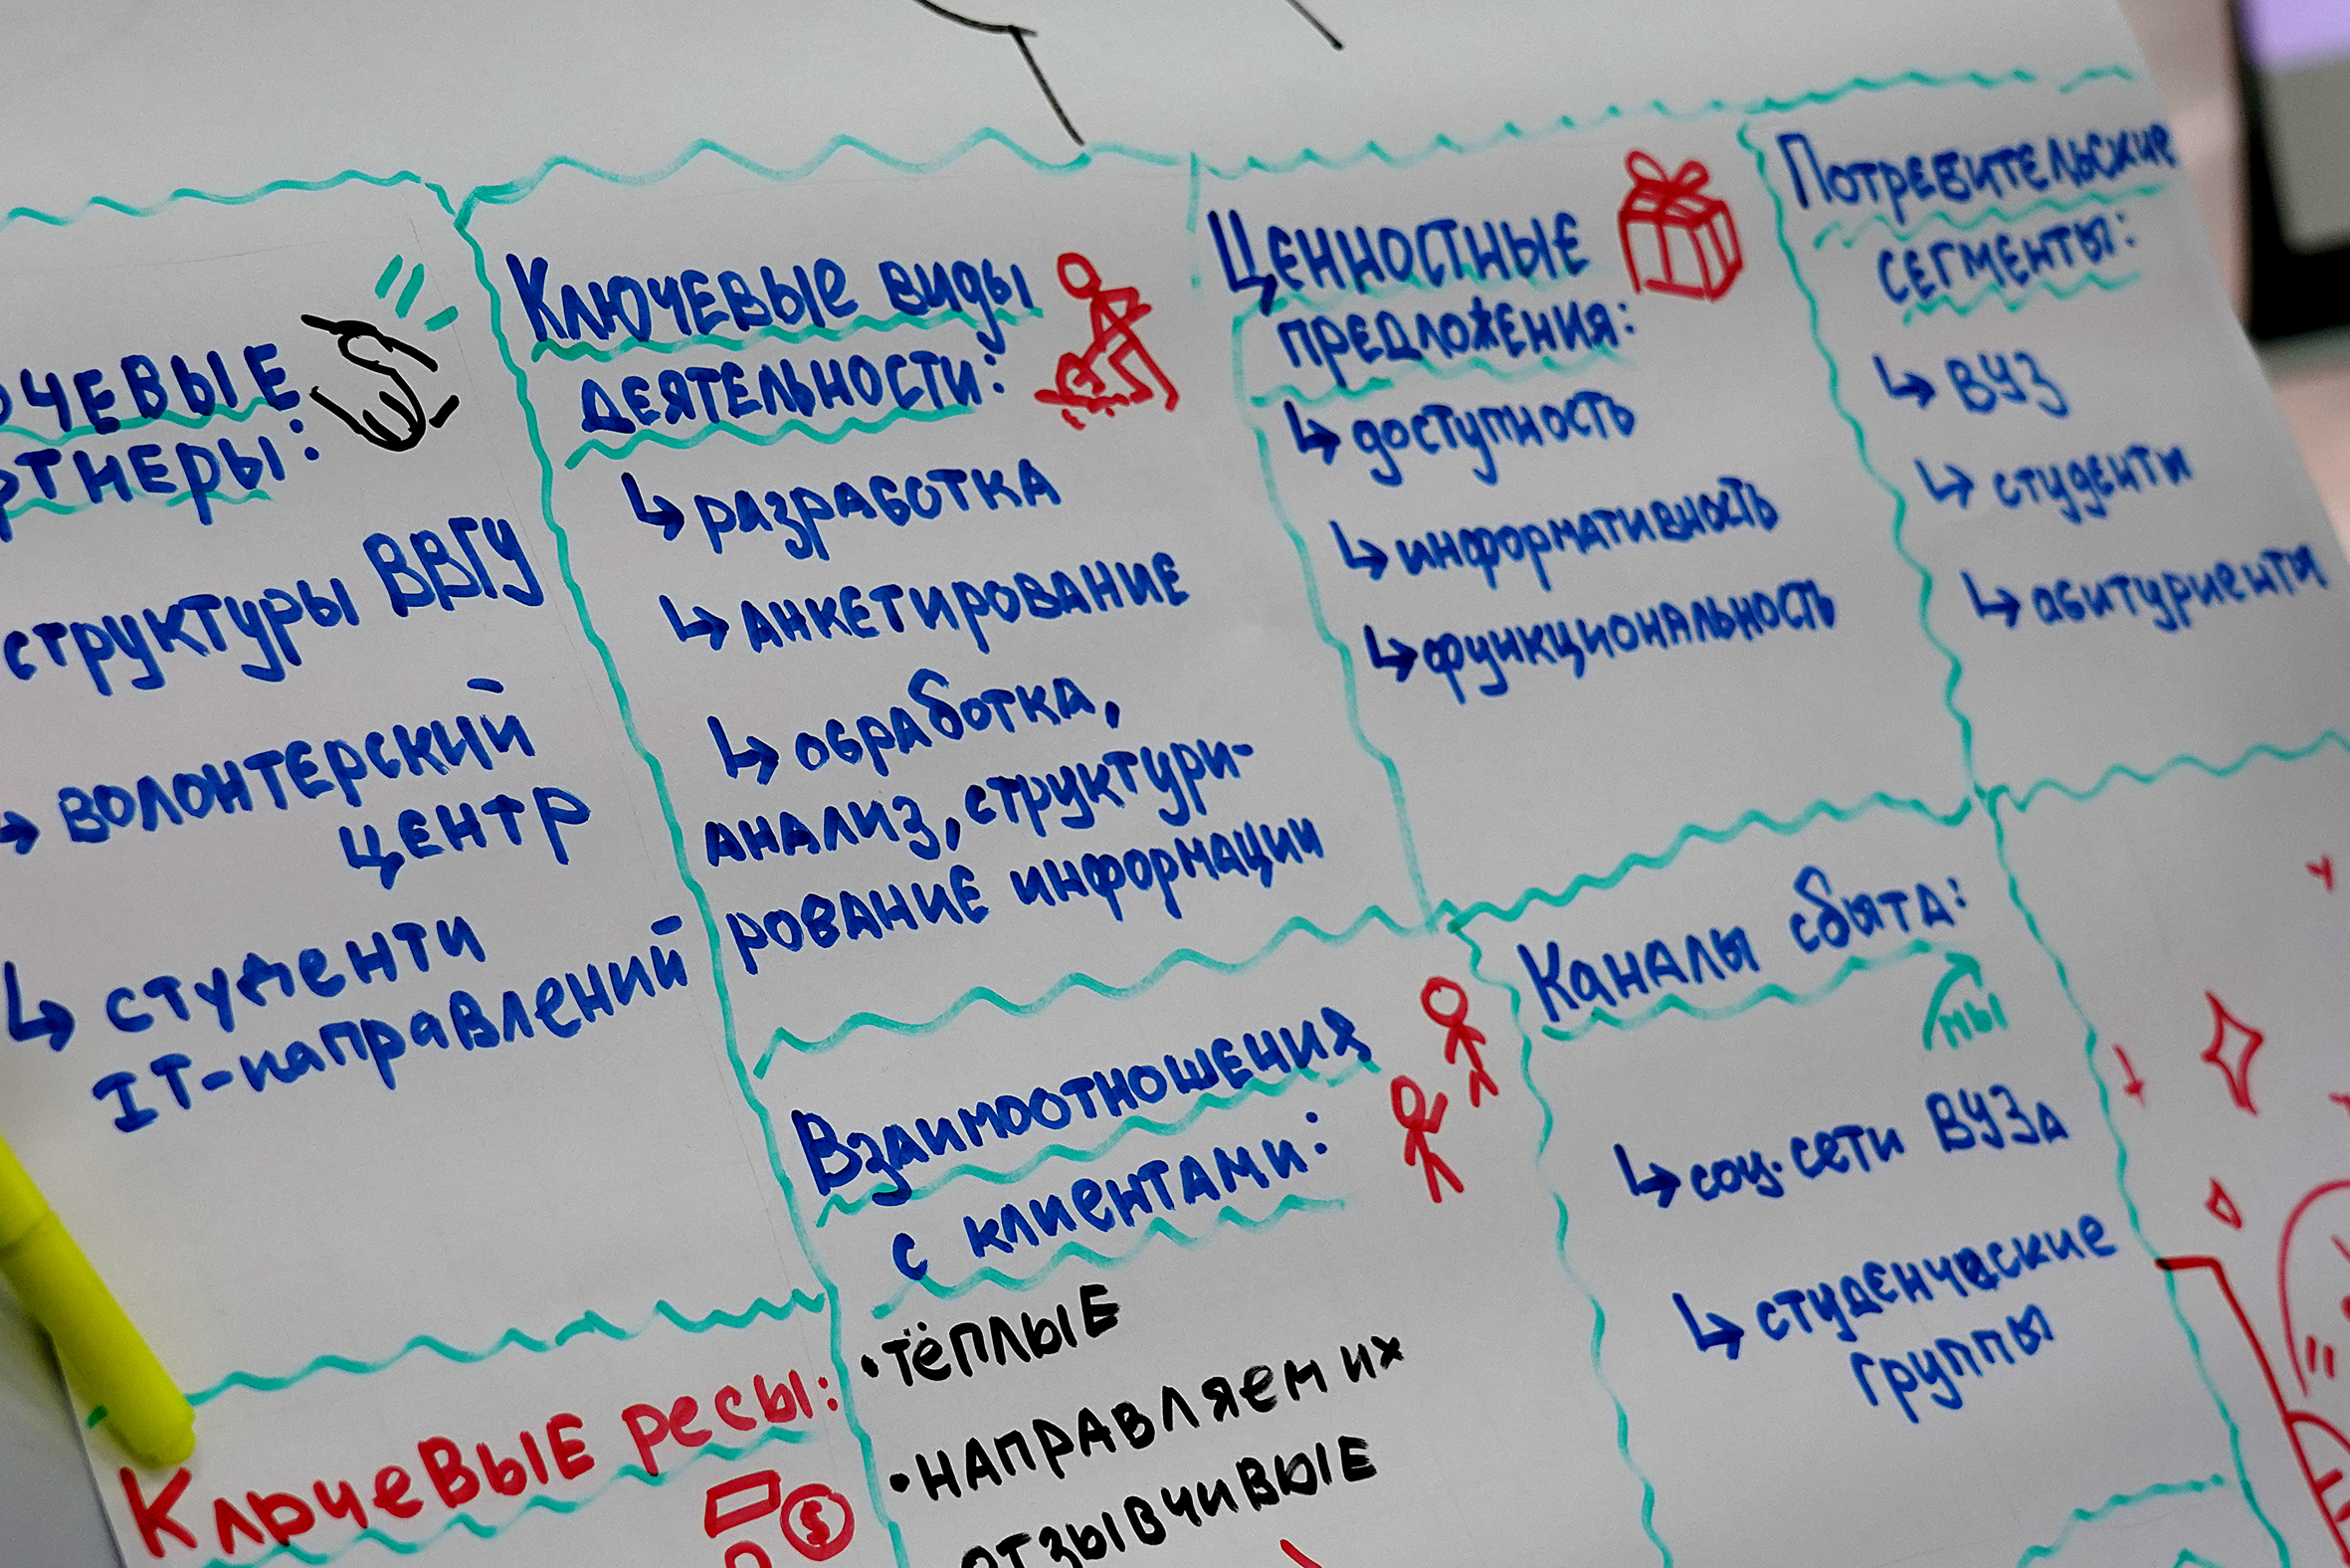 ючевые
ртнеры:
структуры ВВГУ
↳ волонтерский
центр
↳ студенти
IT-направлений
Ключевые виды
деятельности:
↳ разработка
↳ анкетирование
↳ обработка,
анализ, структури-
рование информации
Ценностные
предложения:
↳ доступность
↳ информативность
↳ функциональность
Потребительские
сегменты:
↳ ВУЗ
↳ студенти
↳ абитуриенти
Взаимоотношения
с клиентами:
• тёплые
• направляем их
отзывчивые
Каналы сбыта:
мы
↳ соц. сети ВУЗа
↳ студенческие
группы
Ключевые ресы:
$